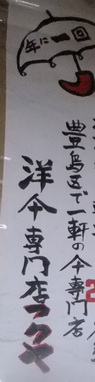 年に一回
豊島区で一軒の仐専門店
洋仐専門店フクヤ